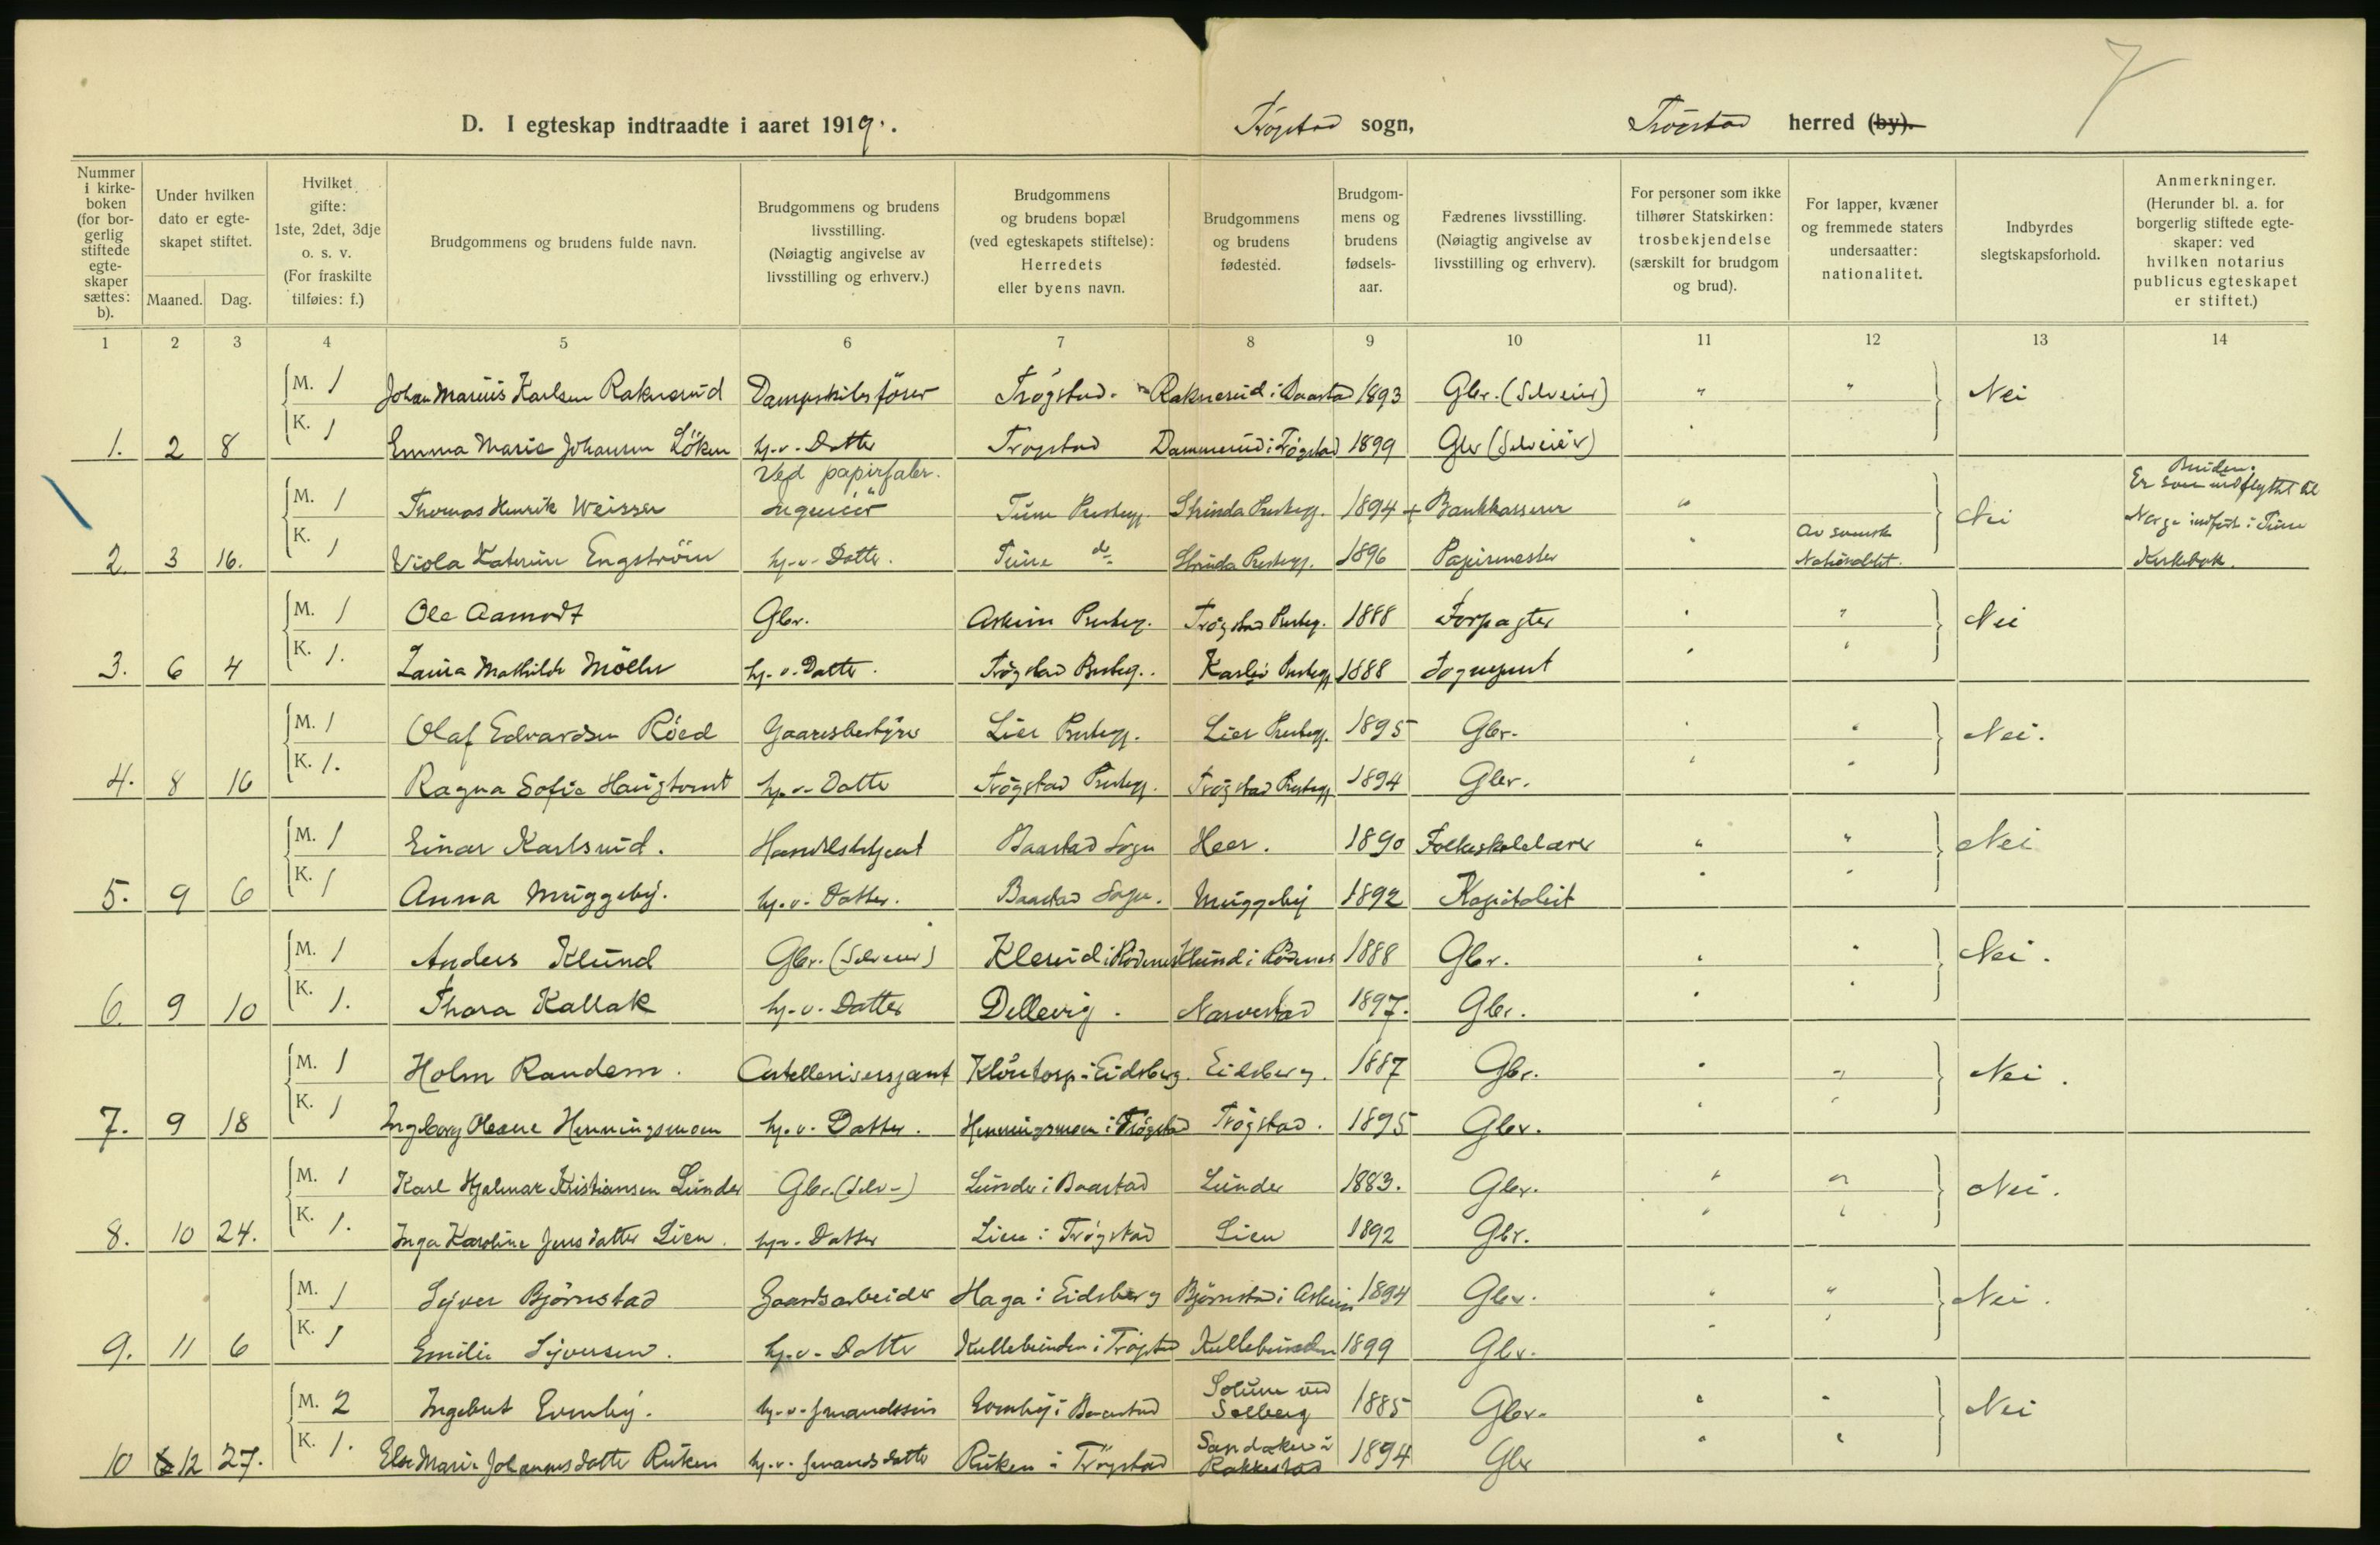 7
D. I egteskap indtraadte i aaret 1919. Trøgstad sogn, Trøgstad herred (by).
Nummer i kirkeboken (for borgerlig stiftede egteskaper sættes: b).
Under hvilken dato er egteskapet stiftet.
Maaned. Dag.
Hvilket gifte: 1ste, 2det, 3dje o. s. v. (For fraskilte tilføies: f.)
Brudgommens og brudens fulde navn.
Brudgommens og brudens livsstilling. (Nøiagtig angivelse av livsstilling og erhverv.)
Brudgommens og brudens bopæl (ved egteskapets stiftelse): Herredets eller byens navn.
Brudgommens og brudens fødested.
Brudgommens og brudens fødselsaar.
Fædrenes livsstilling. (Nøiagtig angivelse av livsstilling og erhverv).
For personer som ikke tilhører Statskirken: trosbekjendelse (særskilt for brudgom og brud).
For lapper, kvæner og fremmede staters undersaatter: nationalitet.
Indbyrdes slegtskapsforhold.
Anmerkninger. (Herunder bl. a. for borgerlig stiftede egteskaper: ved hvilken notarius publicus egteskapet er stiftet.)
1 2 3 4 5 6 7 8 9 10 11 12 13 14
M. 1 Johan Marius Karlsen Raknerud Dampskibsfører Trøgstad. Raknerud i Baastad 1893 Gbr. (Selveier) " " Nei
1. 2 8 K. 1 Emma Marie Johansen Löken hj.-v.-Datter Trøgstad Dammerud i Trøgstad 1899 Gbr (Selveier)
Ved papirfabr. Bruden.
M. 1 Thomas Henrik Weisser Ingeniör Tune Prestegj. Strinda Prestegj. 1894 + Bankkasserer " Nei Er som indflyttet til
Norge indført i Tune
2. 3 16. K. 1 Viola Katrine Engström hj.-v-Datter. Tune do Strinda Prestegj. 1896 Papirmester " Av svensk Nationalitet. Kirkebok.
M. 1 Ole Aamodt Gbr. Askim Presteg. Trøgstad Presteg. 1888 Forpagter " " Nei
3. 6 4 K. 1. Laura Mathilde Möller hj.-v.Datter. Trøgstad Presteg.. Prestegj 1888
M. 1 Olaf Edvardsen Röed Gaardsbestyrer Lier Prestegj. Lier Prestegj. 1895 Gbr. " " Nei.
4. 8 16 K. 1. Ragna Sofie Haugtomt hj.-v-Datter Trøgstad Prestegj. Trøgstad Prestegj 1894 Gbr. " "
M. 1 Einar Karlsrud. Handelsbetjent Baastad Sogn Heer. 1890 Folkeskolelærer " " Nei
5. 9 6 K. 1 Anna Muggeby. hj.-v.-Datter. Baastad Sogn. Muggeby 1892 Kapitalist " "
M. 1 Anders Klund Gbr. (Selveier) Klerud i Rödenes Klund i Rödenes 1888 Gbr. " " Nei.
6. 9 10 K. 1. Thora Kallak hj.-v.-Datter Dillevig. Narvestad 1897. Gbr. " "
M. 1 Holm Randem. Artillerisersjant Klöutorp i Eidsberg. Eidsberg. 1887 Gbr. " " Nei.
7. 9 18 K. 1 Ingeborg Oleane Henningsmoen hj.-v.-Datter. Henningsmoen i Trøgstad Trøgstad. 1895 Gbr. " "
M. 1 Karl Hjalmar Kristiansen Lunder Gbr. (Selv-) Lunder i Baastad Lunder 1883. Gbr. " " Nei.
8. 10 24. K. 1. Inga Karoline Jensdatter Lien. hj.v.-Datter Lien i Trøgstad Lien 1892 Gbr. " "
M. 1 Syver Björnstad Gaardsarbeider Haga i Eidsberg Björnstad i Askim 1894 Gbr. " " Nei.
9. 11 6 K. 1 Emilie Syversen. hj.-v-Datter Kullebunden i Trøgstad Kullebunden 1899 Gbr. " "
M. 2 Ingebret Eventby. hj.-v-gmandssøn Eventby i Baastad Solum ved Solberg 1885 Gbr. " " Nei
10 12 27. K. 1. Else Marie Johannesdatter Ruken hj.-v.-gmandsdatter Ruken i Trøgstad Sandaker i Rakkestad 1894 Gbr " "